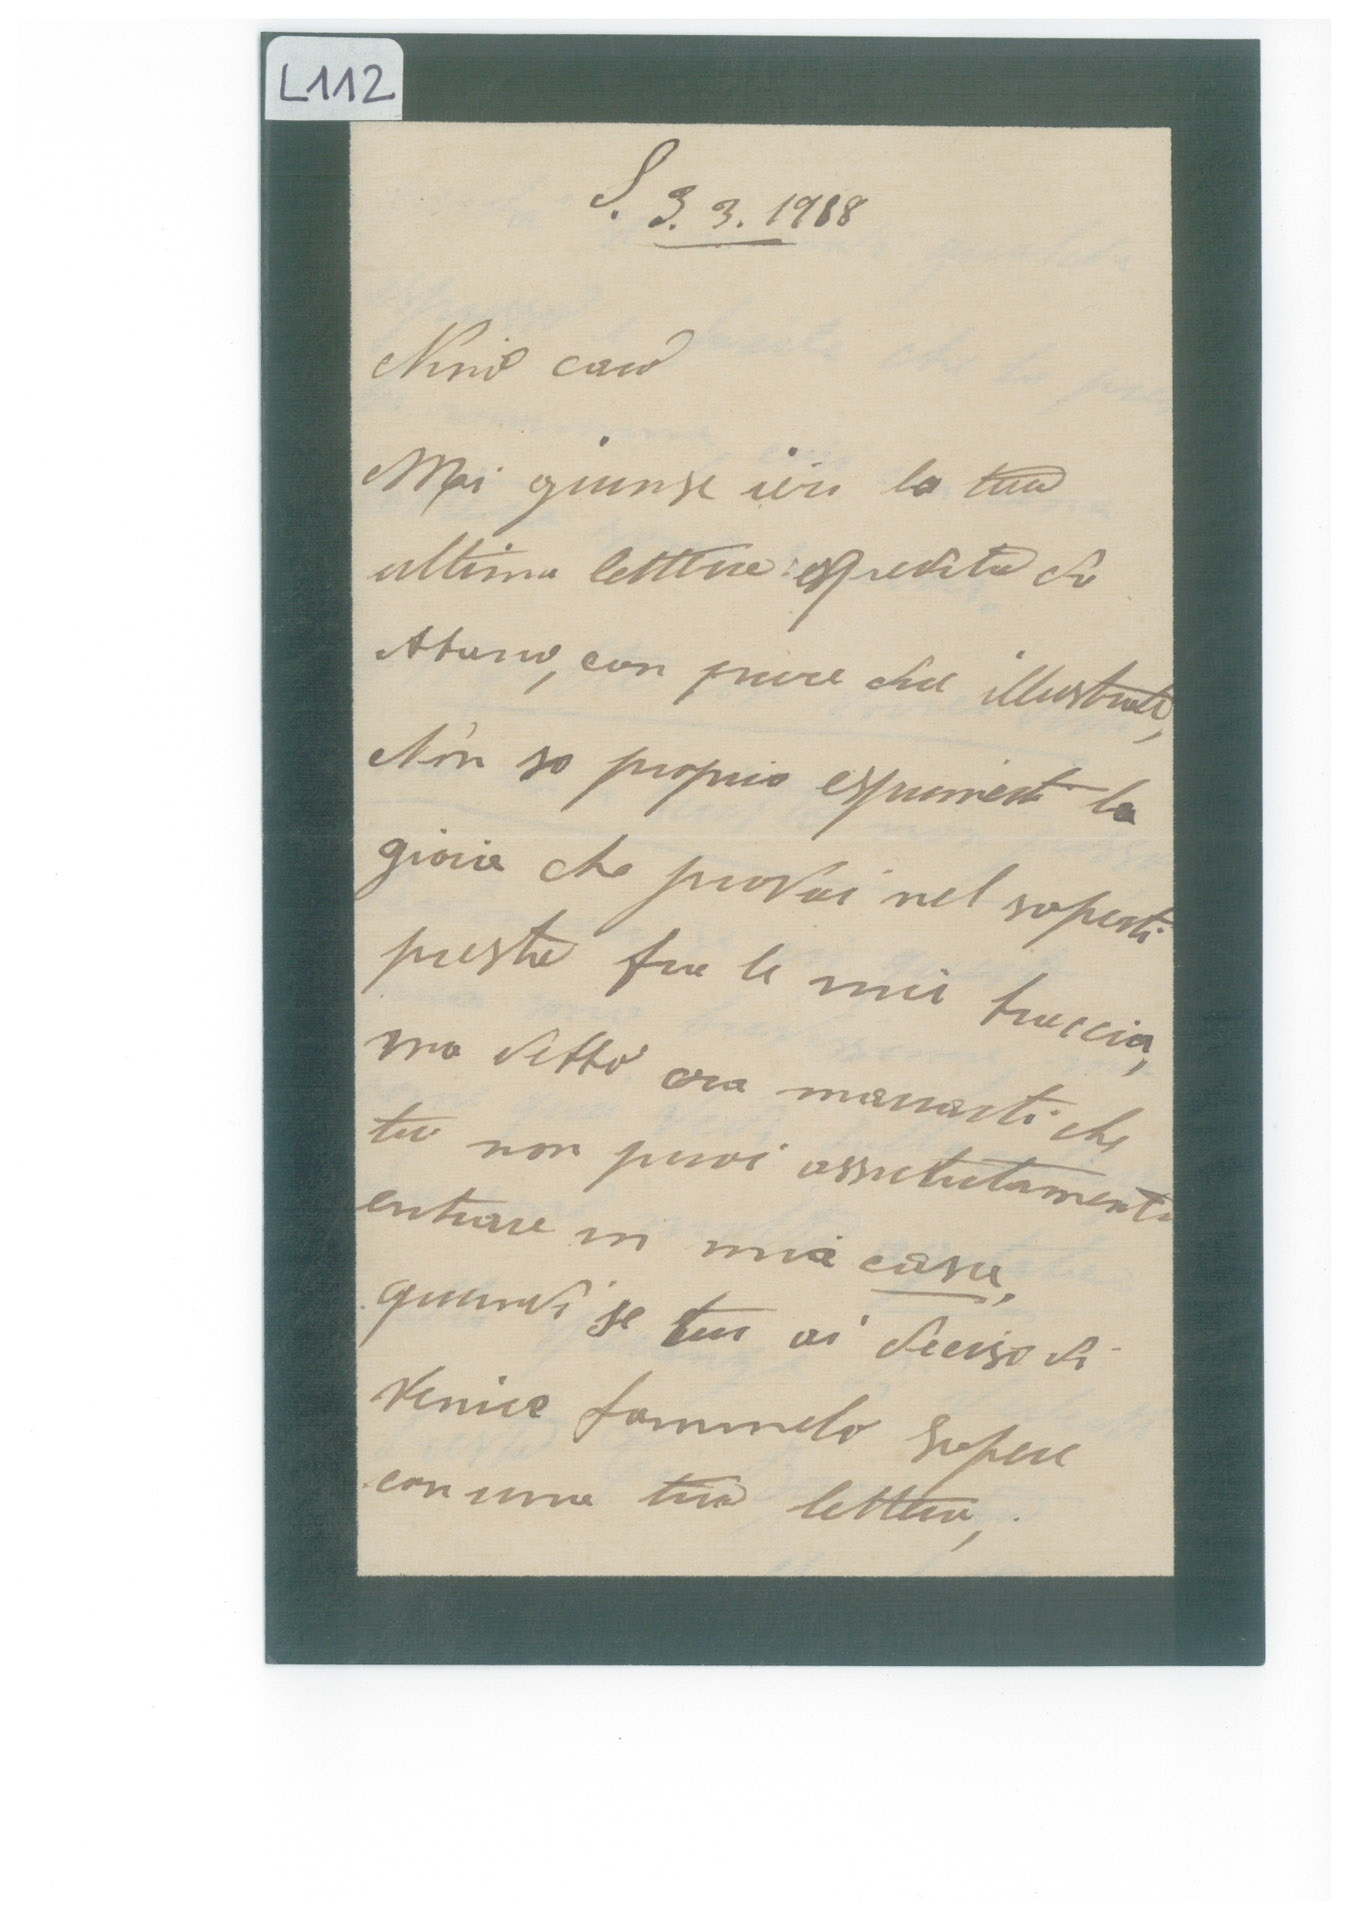 L112
S. 3. 3. 1918
Nino caro
Mi giunse ieri la tua
ultima lettera espedita da
Abano, con pure due illustrate,
Non so proprio esprimerti la
gioia che provai nel saperti
presto fra le mie braccia,
ma devo ora
tu non puoi assolutamente
entrare in mia casa,
quindi se tu ai deciso di
venire fammelo sapere
con una tua lettera,